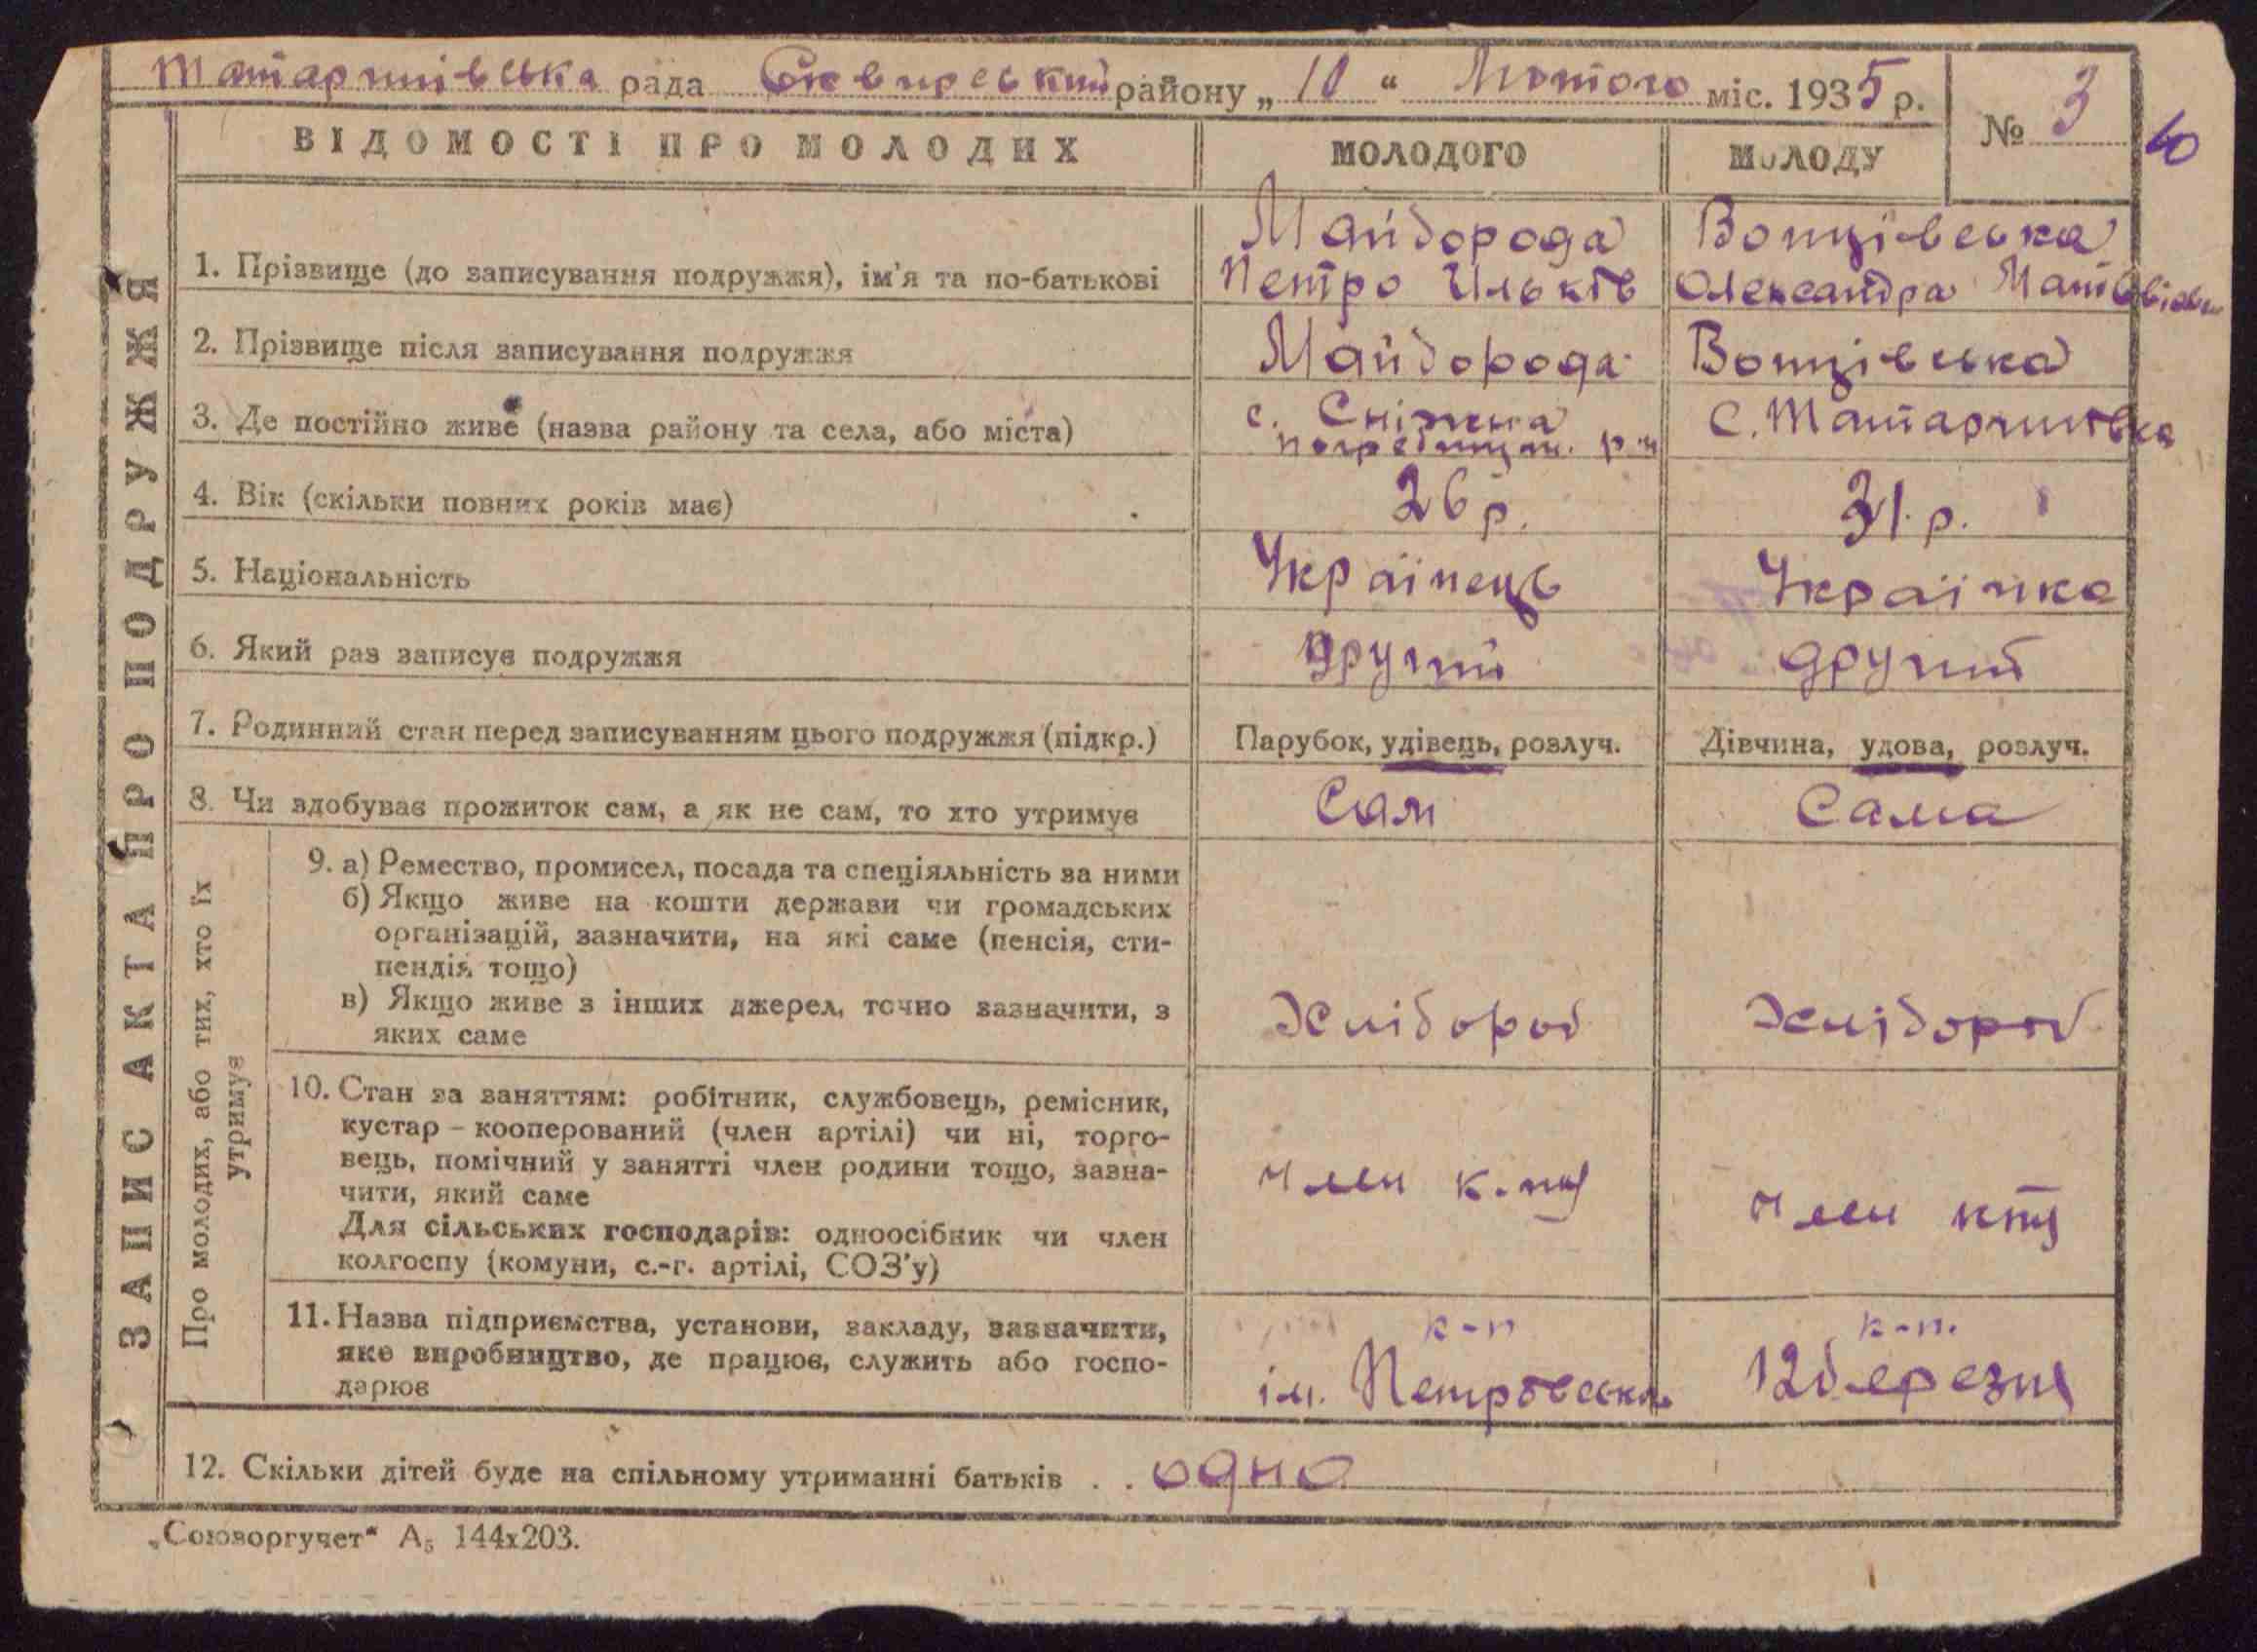 Татаршівська рада Сквирський району „ 10 “ Лютого міс. 1935 р.
№ 3
ВІДОМОСТІ ПРО МОЛОДИХ
МОЛОДОГО
МОЛОДУ
ЗАПИС АКТА ПРО ПОДРУЖЖЯ
1. Прізвище (до записування подружжя), ім'я та по-батькові
Майборода
Петро Ільків
Вонцівська
Олександра Матввівн
2. Прізвище після записування подружжя
Майборода
Вонцівська
3. Де постійно живе (назва району та села, або міста)
с. Сніжна
р-н
С. Татаршівка
4. Вік (скільки повних років має)
26 р.
31. р.
5. Національність
Українець
Українка
6. Який раз записує подружжя
Другий
другий
7. Родинний стан перед записуванням цього подружжя (підкр.)
Парубок, удівець, розлуч.
Дівчина, удова, розлуч.
8. Чи здобуває прожиток сам, а як не сам, то хто утримує
Сам
Сама
Про молодих, або тих, хто їх
утримує
9. а) Ремество, промисел, посада та спеціяльність за ними
б) Якщо живе на кошти держави чи громадських
організацій, зазначити, на які саме (пенсія, сти-
пендія тощо)
в) Якщо живе з інших джерел, точно зазначити, з
яких саме
Хлібороб
Хлібороб
10. Стан за заняттям: робітник, службовець, ремісник,
кустар – кооперований (член артілі) чи ні, торго-
вець, помічний у занятті член родини тощо, зазна-
чити, який саме
Для сільських господарів: одноосібник чи член
колгоспу (комуни, с.-г. артілі, СОЗ'у)
Член
Член
11. Назва підприємства, установи, закладу, зазначити,
яке виробництво, де працює, служить або госпо-
дарює
к-п
ім. Петровськ
к-п.
12 березня
12. Скільки дітей буде на спільному утриманні батьків . . одно
„Союзоргучет“ А₅ 144x203.